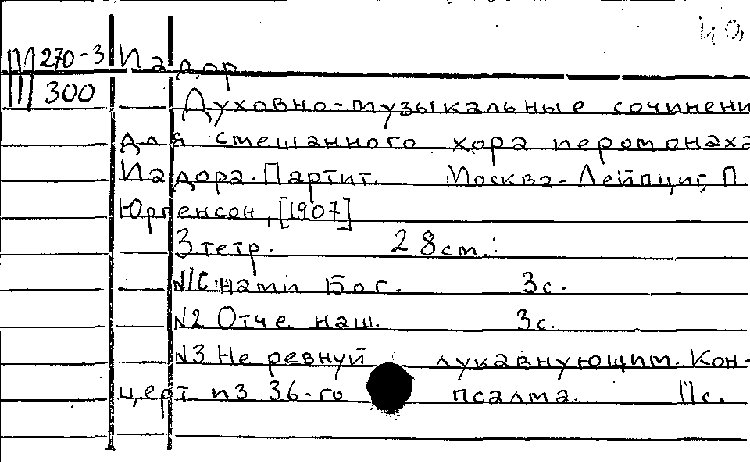 III 270-3 Иадор
300 Духовно-музыкальные сочинени
для смешанного хора иеромонаха
Иадора. Партит. Москва-Лейпциг, П.
Юргенсон, [1907]
3 тетр. 28 см.:
№1 С нами Бог. 3с.
№2 Отче наш. 3с.
№3 Не ревнуй лукавнующим. Кон-
церт из 36-го псалма. 11с.